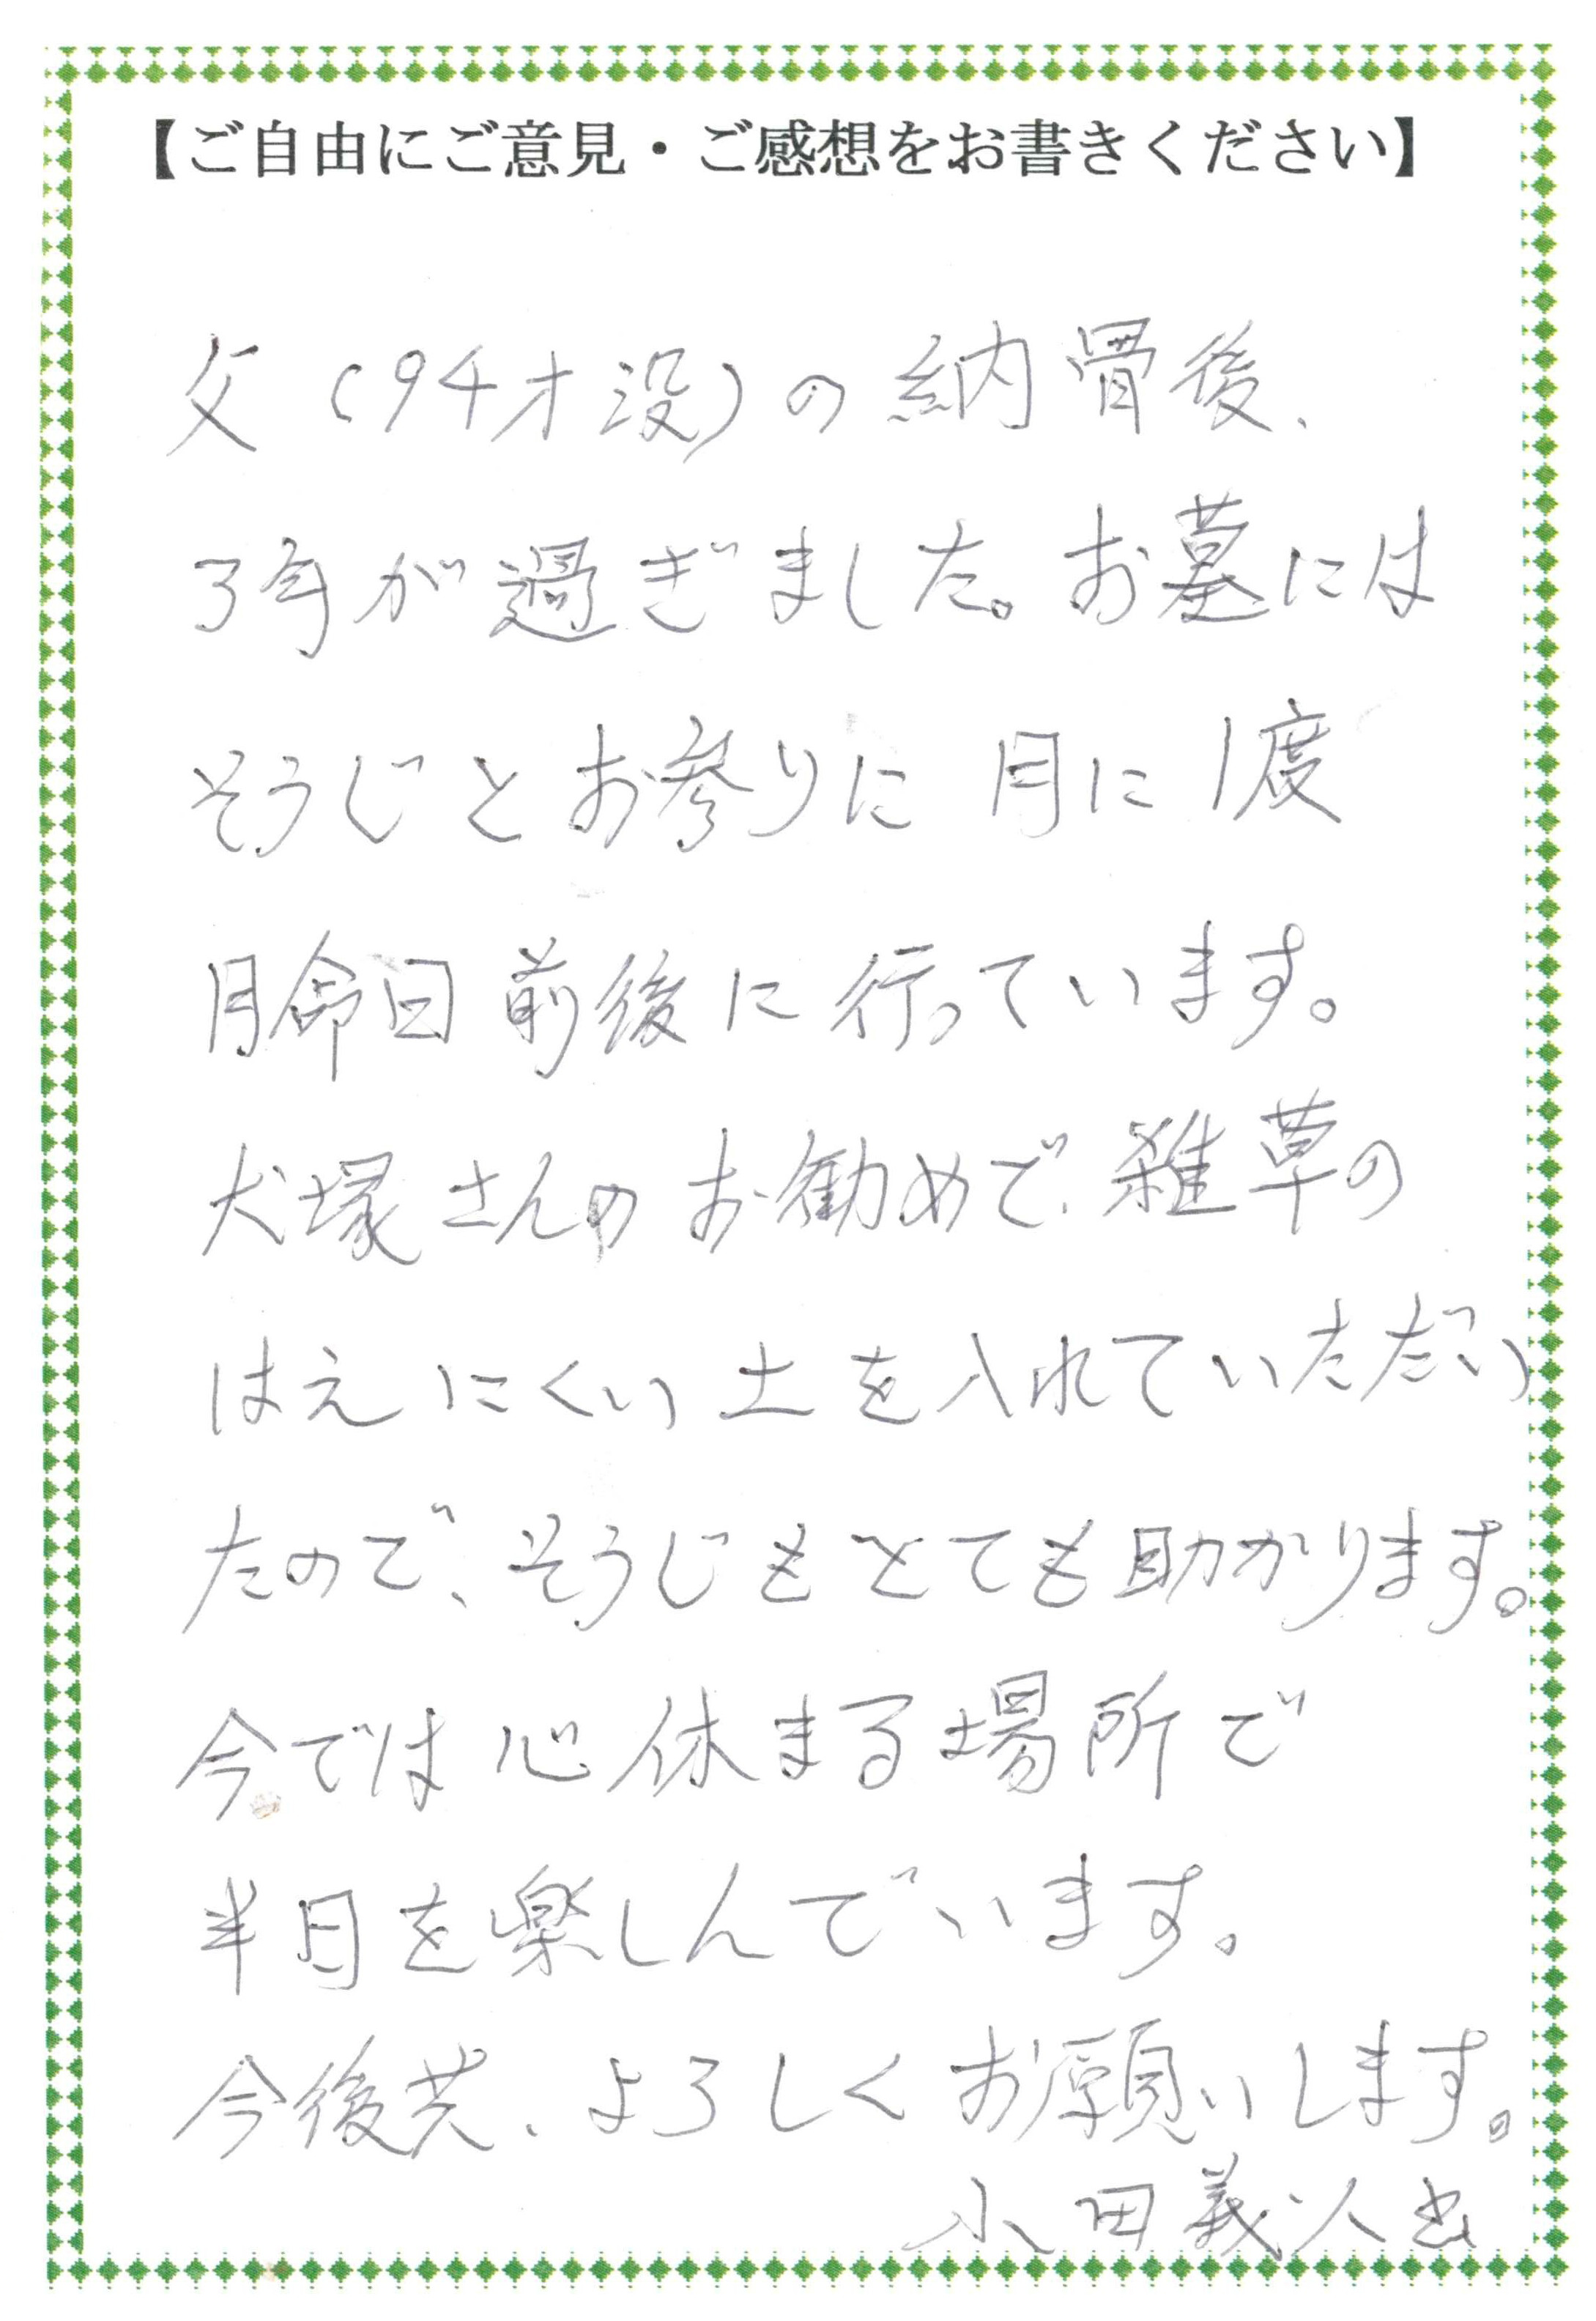 【ご自由にご意見・ご感想をお書きください】
父(94才没)の納骨後、
3年が過ぎました。お墓には
そうじとお参りに月に1度
月命日前後に行っています。
犬塚さんのお勧めで、雑草の
はえにくい土を入れていただい
たので、そうじもとても助かります。
今では心休まる場所で
半日を楽しんでいます。
今後共、よろしくお願いします。
小田義人